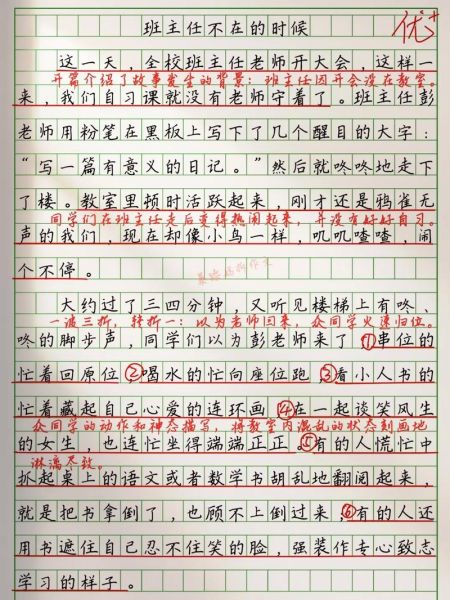 优+
班主任不在的时候
这一天，全校班主任老师开大会，这样一
开篇介绍了故事发生的背景：班主任因开会没在教室。
来，我们自习课就没有老师守着了。班主任彭
老师用粉笔在黑板上写下了几个醒目的大字：
“写一篇有意义的日记。”然后就咚咚地走下
了楼。教室里顿时活跃起来，刚才还是鸦雀无
同学们在班主任走后变得热闹起来，并没有好好自习。
声的我们，现在却像小鸟一样，叽叽喳喳，闹
个不停。
大约过了三四分钟，又听见楼梯上有咚、
一波三折，转折一：以为老师回来，众同学火速归位。
咚的脚步声，同学们以为彭老师来了①串位的
忙着回原位②喝水的忙向座位跑③看小人书的
忙着藏起自己心爱的连环画④在一起谈笑风生
众同学的动作和神态描写，将教室内混乱的状态刻画地
的女生，也连忙坐得端端正正。⑤有的人慌忙中
淋漓尽致。
抓起桌上的语文或者数学书胡乱地翻阅起来，
就是把书拿倒了，也顾不上倒过来⑥有的人还
用书遮住自己忍不住笑的脸，强装作专心致志
学习的样子。